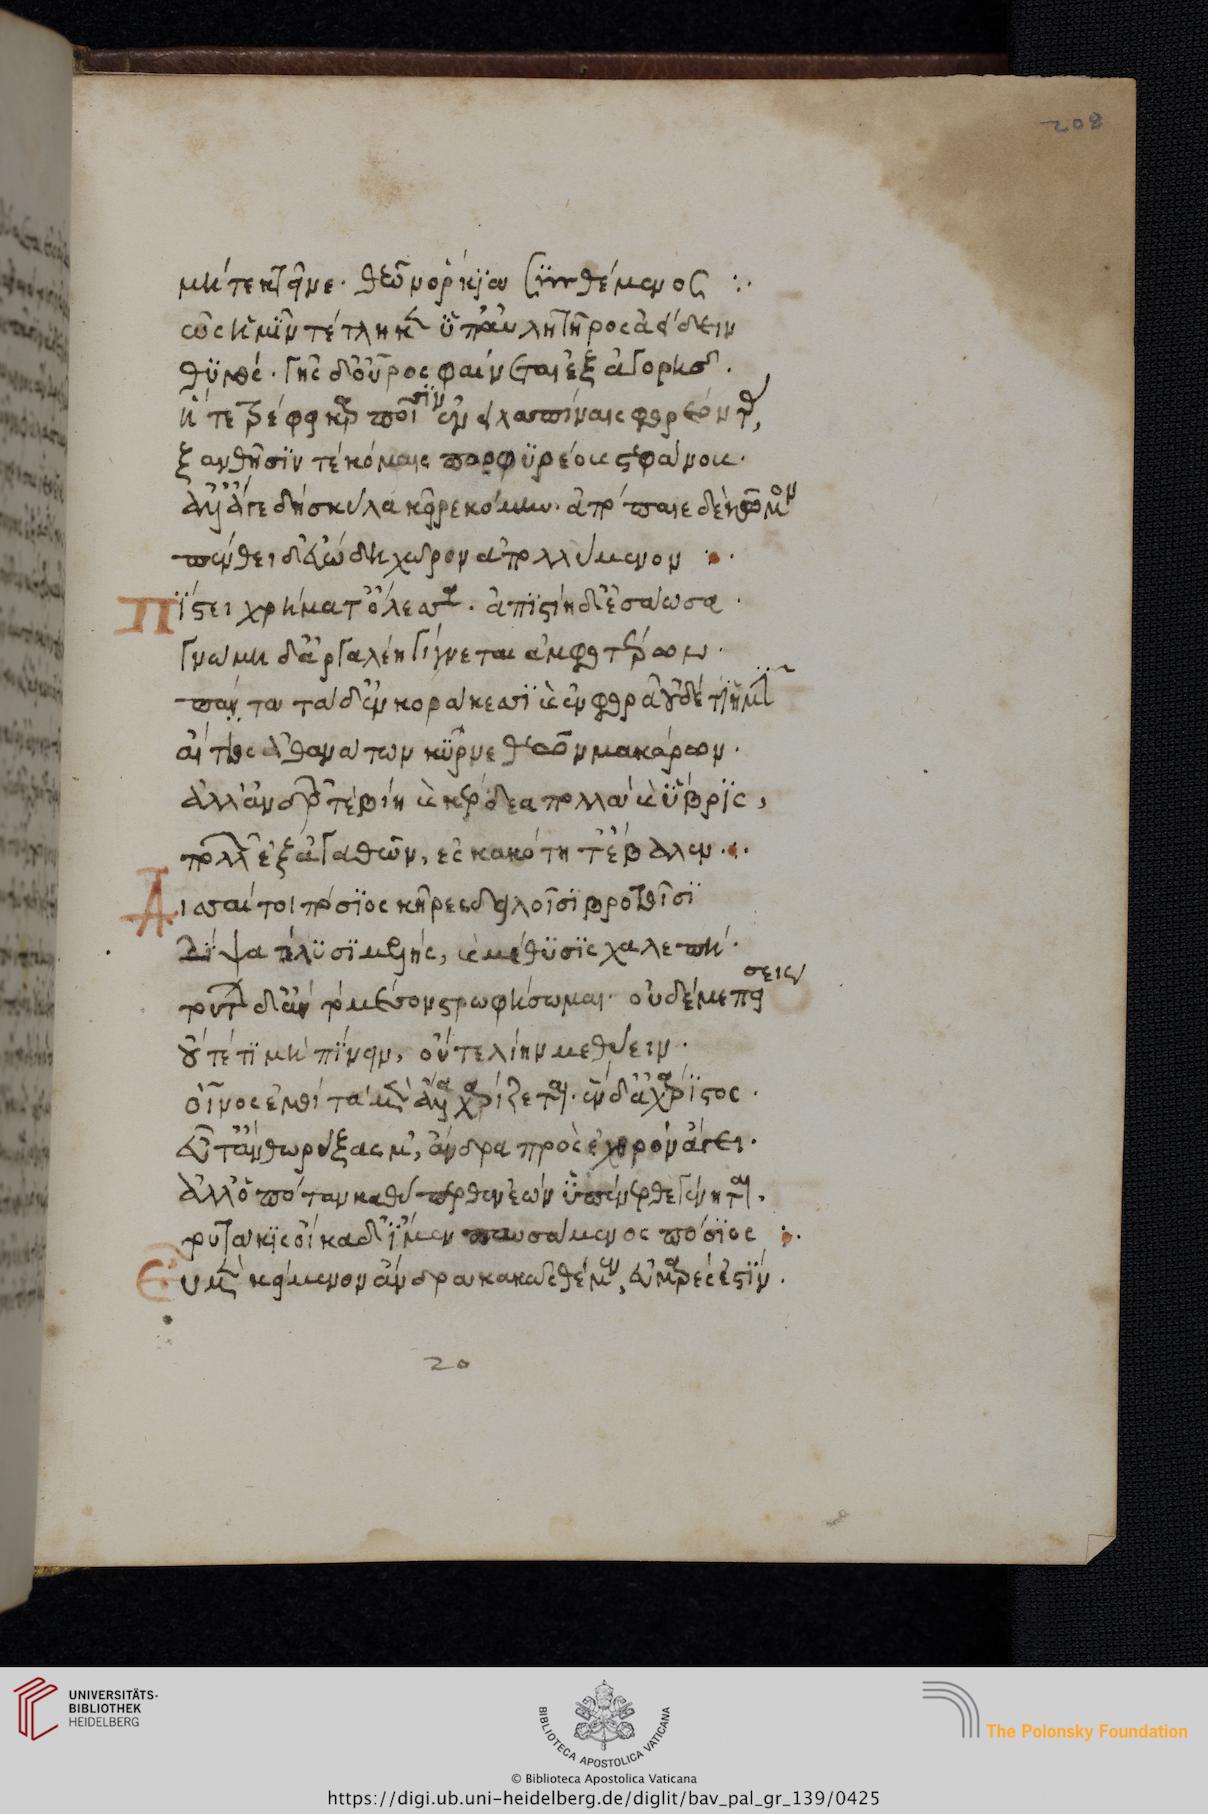 208
μήτε κτεῖνε. θεῶν ὅρκια συνθέμενος :.
πῶς ἡμῖν τέτληκεν ὑπ' αὐλητῆρος ἀείδειν
θυμός. γῆς δ' οὖρος φαίνεται ἐξ ἀγορῆς.
ἥ τε τρέφει καρποῖσιν ἐν εἰλαπίναις φορέοντας,
ξανθῇσίν τε κόμαις πορφυρέοις στεφάνοις.
ἀλλ' ἄγε δὴ σκύθα κεῖρε κόμην. ἀπόπαυε δὲ κῶμον
πένθει δ' εὐώδη χῶρον ἀπολλύμενον :.
Πίστει χρήματ' ὄλεσσα. ἀπιστίη δ' ἐσάωσα.
γνώμη δ' ἀργαλέη γίγνεται ἀμφοτέρων.
πάντα τάδ' ἐν κοράκεσσι καὶ ἐν φθορᾷ οὐδέ τις ἡμῖν
αἴτιος ἀθανάτων κύρνε θεῶν μακάρων.
ἀλλ' ἀνδρῶν τε βίη καὶ κέρδεα πολλὰ καὶ ὕβρις,
πολλῶν ἐξ ἀγαθῶν, ἐς κακότητ' ἔβαλεν :.
Δισσαί τοι πόσιος κῆρες δειλοῖσι βροτοῖσι
δίψα τε λυσιμελής, καὶ μέθυσις χαλεπή.
τούτων δ' ἂν τὸ μέσον στρωφήσομαι. οὐδέ με πείσεις
οὔτέ τι μὴ πίνειν, οὔτε λίην μεθύειν.
οἶνος ἐμοὶ τὰ μὲν ἄλλα χαρίζεται. ἓν δ' ἀχάριστος.
εὖτ' ἂν θωρήξας μ', ἄνδρα πρὸς ἐχθρὸν ἄγει.
ἀλλ' ὁπόταν καθύπερθεν ἐὼν ὑπένερθε γένηται.
τουτάκις οἴκαδ' ἴμεν παυσάμενος πόσιος :.
Εὖ μὲν κείμενον ἄνδρα κακῶς θέμεν, εὐμαρές ἐστίν.
20
UNIVERSITÄTS-
BIBLIOTHEK
HEIDELBERG
BIBLIOTECA APOSTOLICA VATICANA
The Polonsky Foundation
© Biblioteca Apostolica Vaticana
https://digi.ub.uni-heidelberg.de/diglit/bav_pal_gr_139/0425